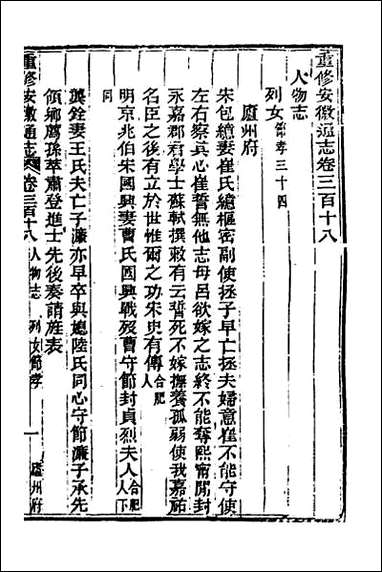 重修安徽通志卷三百十八
人物志
列女節孝三十四
廬州府
宋包繶妻崔氏繶樞密副使拯子早亡拯夫婦意崔不能守使
左右察其心崔誓無他志母呂欲嫁之志終不能奪熙甯間封
永嘉郡君學士蘇軾撰敕有云誓死不嫁撫養孤弱使我嘉祐
名臣之後有立於世惟爾之功宋史有傳合肥人
明京兆伯朱國興妻曹氏國興戰歿曹守節封貞烈夫人合肥人下
同
龔銓妻王氏夫亡子濂亦早卒與媳陸氏同心守節濂子承先
領鄉薦孫萃肅登進士先後奏請旌表
重修安徽通志 卷三百十八 人物志 列女節孝 一 廬州府